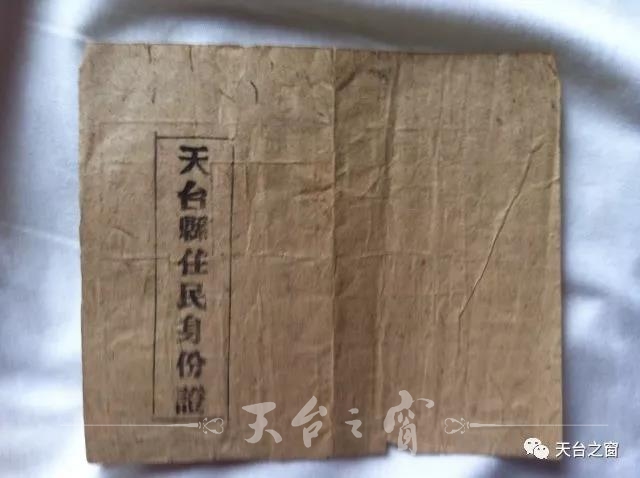 天台縣住民身份證
天台之窗
天台之窗